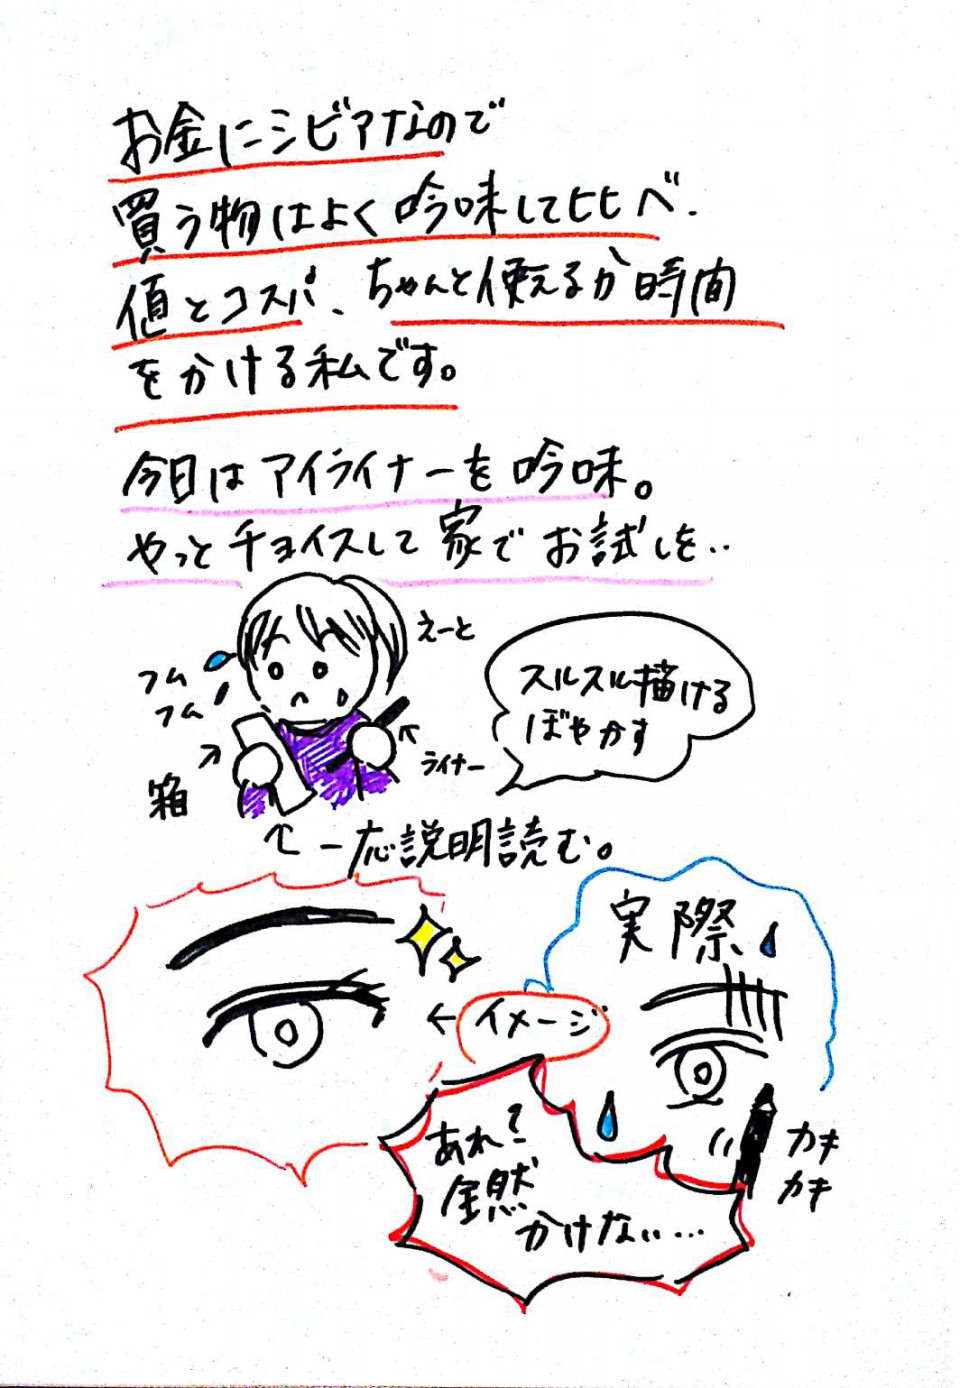 お金にシビアなので
買う物はよく吟味して比べ、
値とコスパ、ちゃんと使えるか時間
をかける私です。
今日はアイライナーを吟味。
やっとチョイスして家でお試しを..
えーと
フム
フム
箱
ライナー
スルスル描ける
ぼやかす
一応説明読む。
実際
イメージ
あれ?
全然
かけない...
カキ
カキ